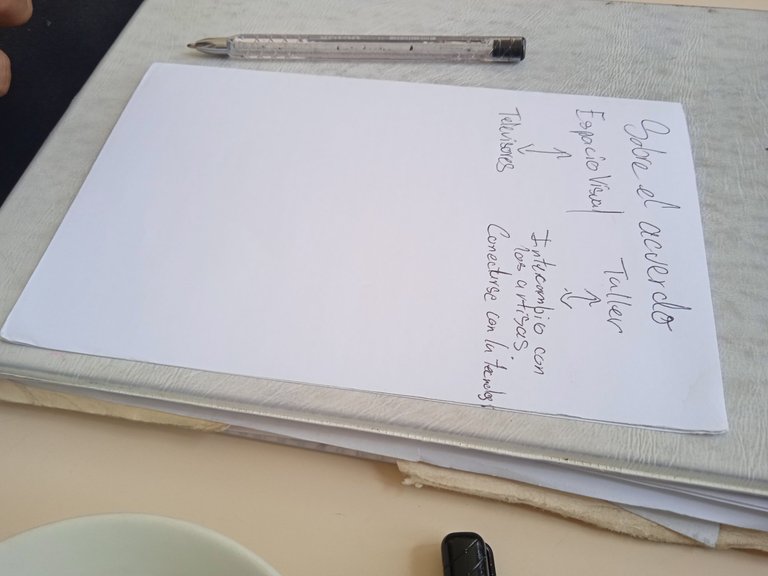 Sobre el acuerdo
Espacio Visual
Televisores
Taller
Intercambio con
los artisas.
Conectarse con la tecnolog